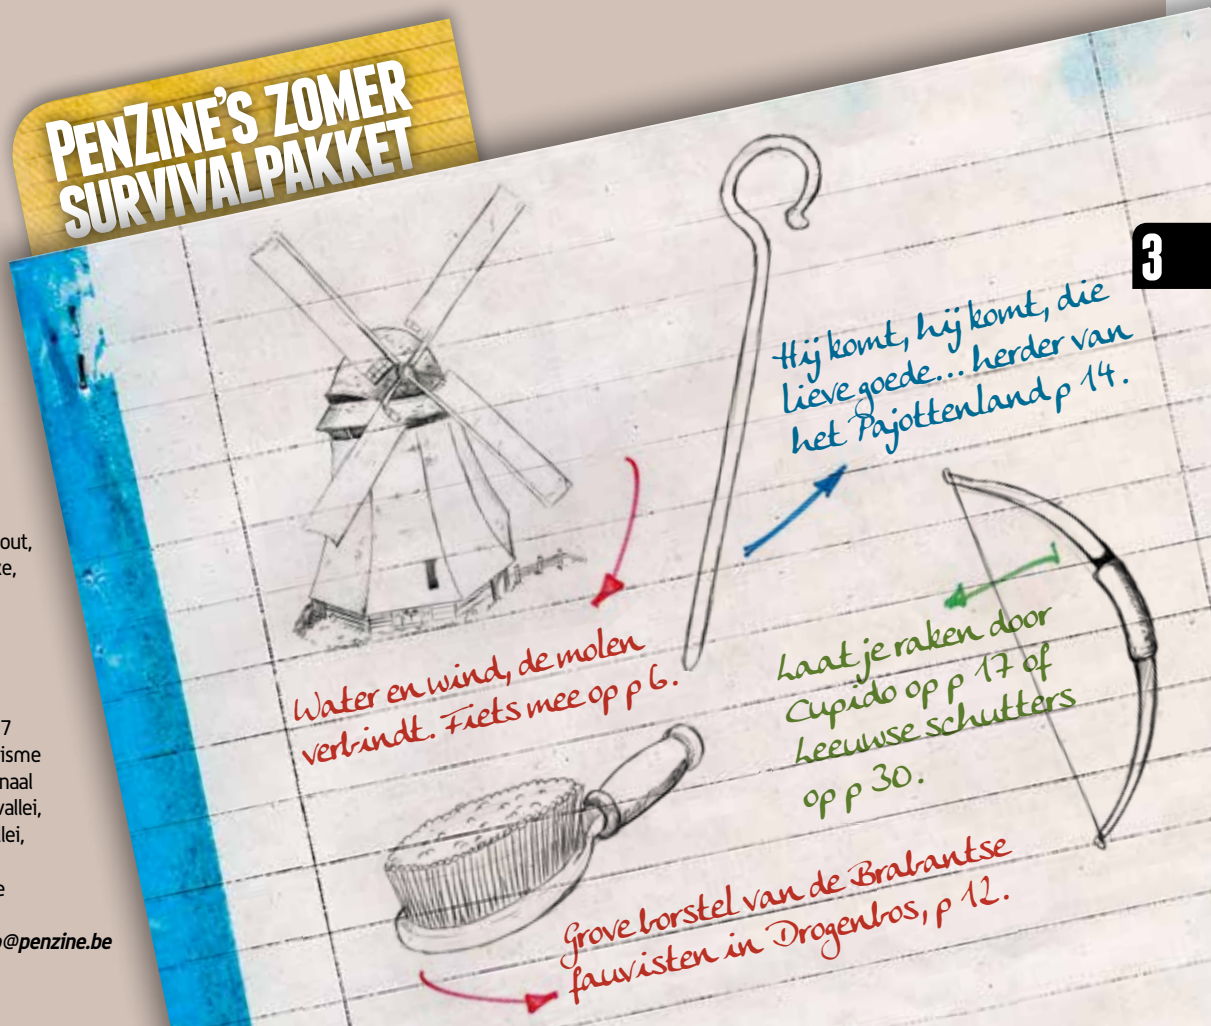 PENZINE'S ZOMER
SURVIVALPAKKET
3
Hij komt, hij komt, die
lieve goede... herder van
het Pajottenland p 14.
Water en wind, de molen
verbindt. Fiets mee op p 6.
Laat je raken door
Cupido op p 17 of
Leeuwse schutters
op p 30.
Grove borstel van de Brabantse
fauvisten in Drogenbos, p 12.
out,
7
@penzine.be